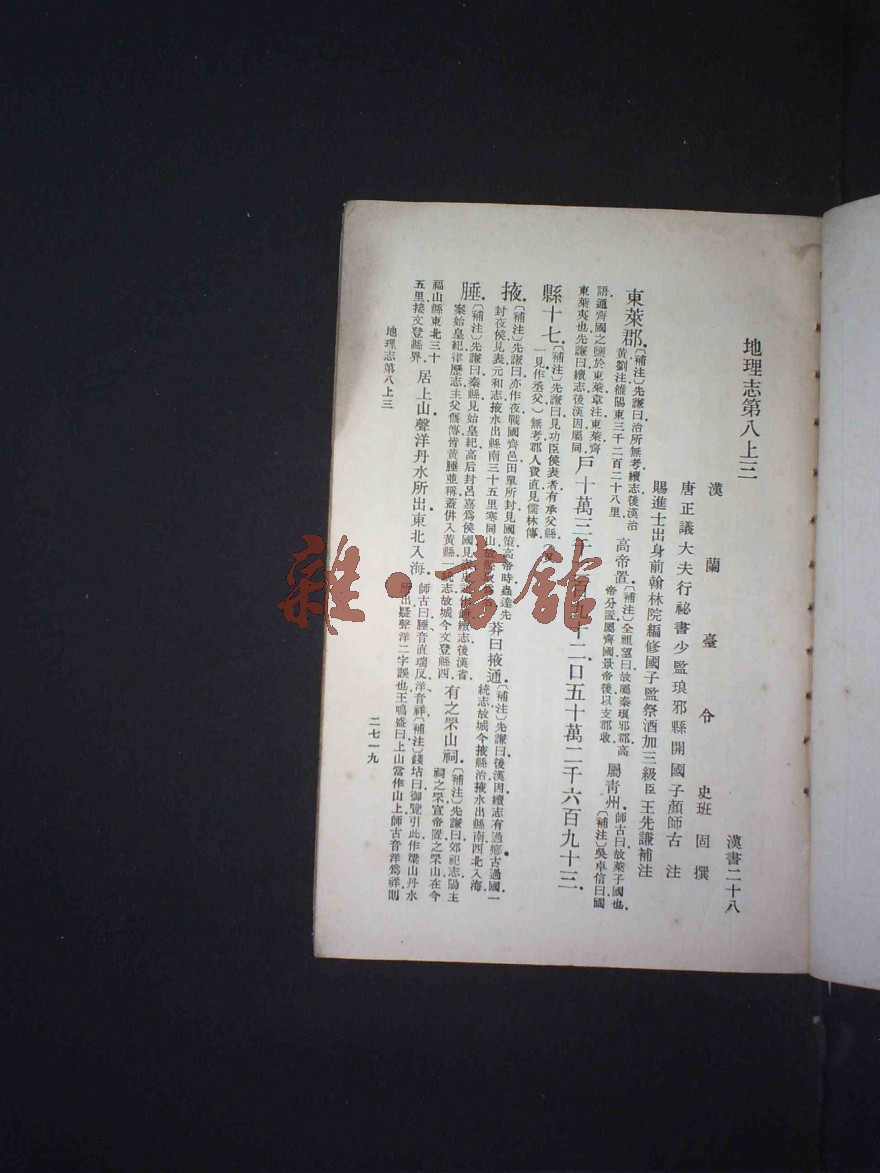 地理志第八上三 漢書二十八
漢蘭臺令史班固撰
唐正議大夫行祕書少監琅邪縣開國子顏師古注
賜進士出身前翰林院編修國子監祭酒加三級臣王先謙補注
東萊郡.〔補注〕先謙曰治所無考續志後漢治黃劉注雒陽東三千二百二十八里.高帝置.〔補注〕全祖望曰故屬秦琅邪郡高帝分置屬齊國景帝後以支郡收.屬青州.師古曰故萊子國也.〔補注〕吳卓信曰國
語通齊國之鹽於東萊韋注東萊齊東萊夷也先謙曰續志後漢因屬同.戶十萬三千 百九十二.口五十萬二千六百九十三.
縣十七.〔補注〕先謙曰見功臣侯表者有承父縣.(又一見作丞父)無考郡人費直見儒林傳.
掖.〔補注〕先謙曰亦作夜戰國齊邑田單所封見國策高帝時蟲達先封夜侯見表元和志掖水出縣南三十五里寒同山故縣取 莽曰掖通.〔補注〕先謙曰後漢因續志有過鄉古過國一統志故城今掖縣治掖水出縣南西北入海.
腄.〔補注〕先謙曰秦縣見始皇紀高后封呂嘉爲侯國見表 續志後漢省案始皇紀律歷志主父偃傳皆黃腄並稱蓋併入黃縣一統志故城今文登縣西.有之罘山祠.〔補注〕先謙曰郊祀志陽主祠之罘宣帝置之罘山在今
福山縣東北三十五里接文登縣界.居上山聲洋丹水所出東北入海.師古曰腄音直瑞反洋音祥〔補注〕錢坫曰御覽引此作梁山丹水所出疑聲洋二字誤也王鳴盛曰上山當作山上師古音洋爲祥則
地理志第八上三
二七一九
雜·書館